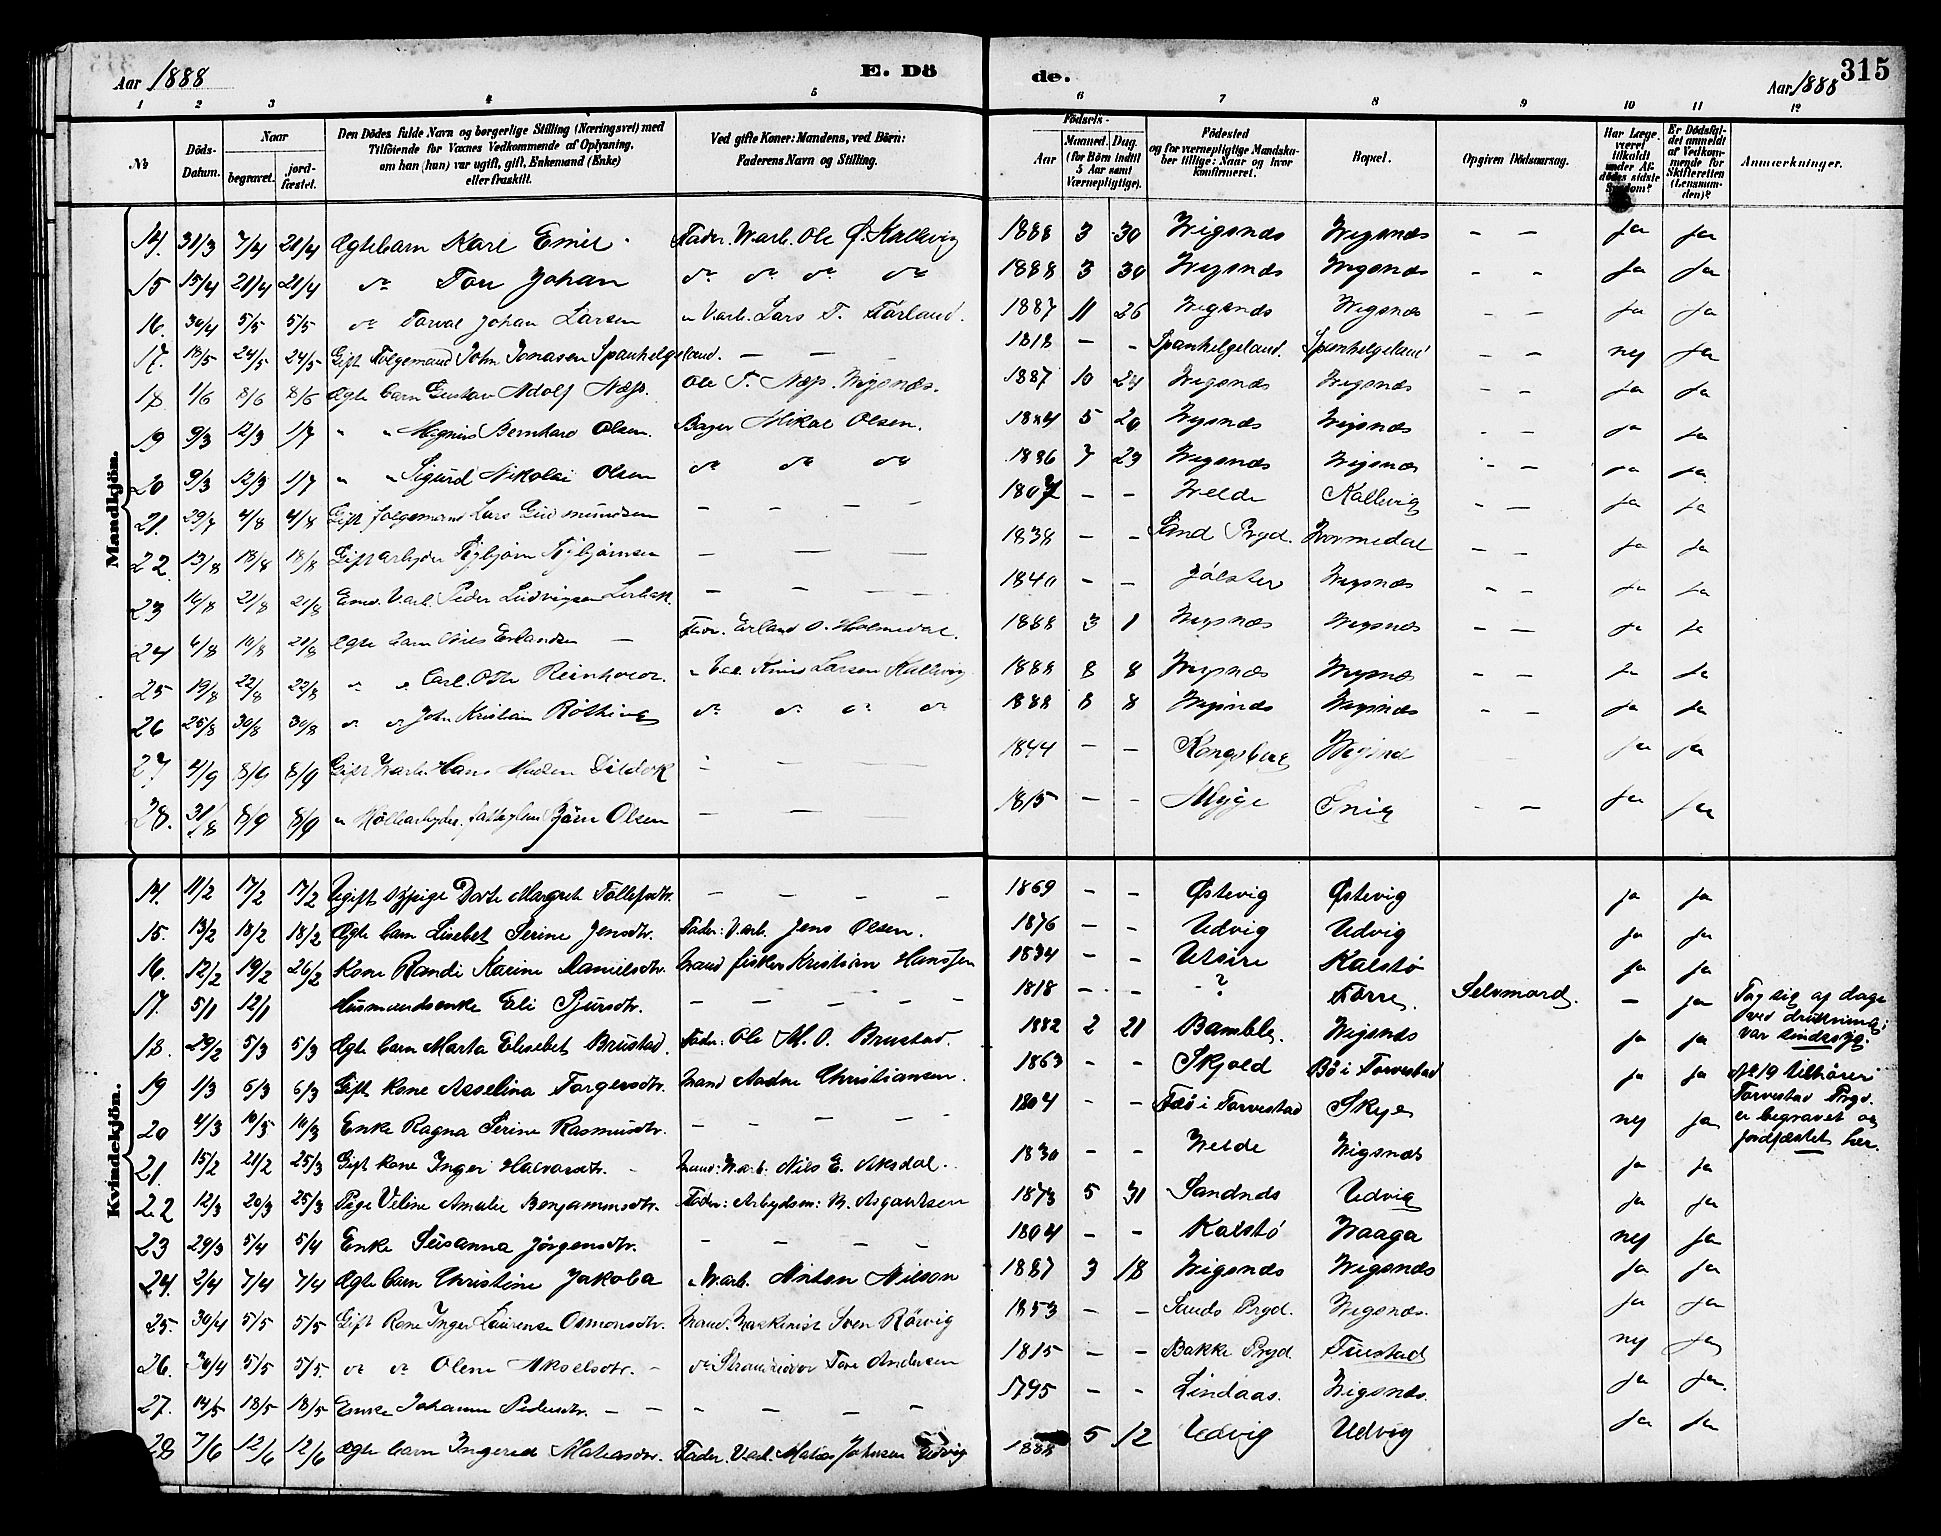 Aar 1888
E. Dö
de.
Aar 1888
315
1 2 3 4 5 6 7 8 9 10 11 12
№
Döds-Datum.
Naar
begravet.
jord-fæstet.
Den Dödes fulde Navn og borgerlige Stilling (Næringsvei) med
Tilföiende for Voxnes Vedkommende af Oplysning,
om han (hun) var ugift, gift, Enkemand (Enke)
eller fraskilt.
Ved gifte Koner: Mandens, ved Börn:
Faderens Navn og Stilling.
Födsels-
Aar
Maaned. Dag.
(for Börn indtil
5 Aar samt
Værnepligtige).
Födested
og for værnepligtige Mandska-
ber tillige: Naar og hvor
konfirmeret.
Bopæl.
Opgiven Dödsaarsag.
Har Læge
været
tilkaldt
under Af-
dödes sidste
Sygdom?
Er Dödsfal-
det anmeldt
af Vedkom-
mende for
Skifteretten
(Lensman-
den)?
Anmærkninger.
Mandkjön.
14. 31/3 7/4 21/4 Ægtebarn Karl Emil Fader. Warb. Ole Ø. Kallevig 1888 3 30 Wigsnæs Wigsnæs - - ja ja
15 15/4 21/4 21/4 do Tore Johan do do do do 1888 3 30 Wigsnæs Wigsnæs - - ja ja
16. 30/4 5/5 5/5 do Torval Johan Larsen " Varb. Lars T. Førland. 1887 11 26 Wigsnæs Wigsnæs - - ja ja
17. 18/5 24/5 24/5 Gift Folgemand John Jonasen Spanhelgeland. - - - 1818 - - Spanhelgeland. Spanhelgeland - - nej ja
18 1/6 8/6 8/6 Ægte barn Gustav Adolf Næss. Ole T. Næss. Wigsnæs. 1887 10 24 Wigsnæs Wigsnæs - - ja ja
19 9/3 12/3 1/7 " " Magnus Bernhard Olsen. Bager Mikal Olsen. 1884 5 20 Wigsnæs Wigsnæs - - ja ja
20 9/3 12/3 1/7 " " Sigurd Nikolai Olsen do do do 1886 7 23 Wigsnæs Wigsnæs - - ja ja
21. 29/7 4/8 4/8 Gift folgemand Lars Gudmundsen - - - - 1807 - - Velde Kallevig - - ja ja
22. 13/8 18/8 18/8 Gift arbejder - - - 1838 - - Sand Prgd. - - ja ja
23 16/8 21/8 21/8 Varb. Peder Ludvigsen - - - 1840 - - Jølster Wigsnæs - - ja ja
24 6/8 10/8 21/8 Ægte barn Nils Erlandsen - Fader. Erland O. 1888 3 1 Wigsnæs Wigsnæs - - ja ja
25 19/8 22/8 22/8 " " Carl Otto Reinholdt. Larsen Kallevig 1888 8 8 Wigsnæs Wigsnæs - - ja ja
26 25/8 30/8 30/8 do do John Kristian Røthing do do do do 1888 8 8 Wigsnæs Wigsnæs - - ja ja
27 4/9 8/9 8/9 Gift Warb. Hans - - - 1844 - - Kongsberg Wigsnæs ja ja
28. 31/8 8/9 8/9 " Bjørn Olsen - - - 1815 - - Myge Snig - - ja ja
Kvindekjön.
14. 11/2 17/2 17/2 Ugift Pige Dorte Margrete Tollefsdtr. - - - - 1869 - - Østevig Østevig ja ja
15. 13/2 18/2 18/2 Ægte barn Lisebet Serine Jensdtr. Fader: Varb. Jens Olsen. 1876 - - Udvig Udvig ja ja
16. 12/2 19/2 26/2 Kone Randi Karine Danielsdtr. Mand fisker Kristian Hanssen 1834 - - Utsire Kalstø ja ja
17. 5/1 12/1 Husmandsenke Eli Sjursdtr. - - - - - 1818 - - ? Førre. Selvmord. - ja Tog sig af dage
ved drukning;
var sindssyg.
18. 29/2 5/3 5/3 Ægte barn Marta Elisebet Brustad. Fader: Ole M. O. Brustad. 1882 2 21 Bamble. Wigsnæs ja ja
19 1/3 6/3 6/3 Gift kone Asselina Torgersdtr. Mand Aadne Christiansen. 1863 - - Skjold Bø i Torvestad ja ja № 19 tilhører
Torvestad Prgd.
er begravet og
jordfæstet her.
20 4/3 10/3 10/3 Enke Ragna Serine Rasmusdtr. - - - - 1804 - - Fæø i Torvestad Skye nej ja
21. 15/2 21/2 25/3 Gift kone Inger Halvorsdtr. - Mand: Warb. Nils E. Aksdal. 1830 - - Velde Wigsnæs ja ja
22 12/3 20/3 25/3 Pige Veline Amalie Benjaminsdtr. Fader: Arbejdsm: B. Asgautsen 1873 5 31 Sandnæs Udvig ja ja
23 29/3 5/4 5/4 Enke Susanna Jørgensdtr. - - - - 1804 - - Kalstø Vaaga nej ja
24. 2/4 7/4 7/4 Ægte barn Christine Jakoba " Warb. Anton Nilson 1887 3 18 Wigsnæs Wigsnæs ja ja
25. 30/4 5/5 5/5 Gift Kone Inger Laurense Osmonsdtr. Mand. Maskinist Sven Rørvig 1853 - - Sands Prgd. Wigsnæs. ja ja
26. 30/4 5/5 5/5 do do Olene Akselsdtr. - do Strandsidder Tore Andersen 1815 - - Bakke Prgd. nej ja
27. 14/5 18/5 18/5 Enke Johanne Pedersdtr. - - - - - - 1795 - - Lindaas. Wigsnæs. ja ja
28 7/6 12/6 12/6 Ægte barn Ingerid Matiasdtr. Fader. Varb. Matias Johnsen Udvig 1888 5 12 Udvig Udvig ja ja